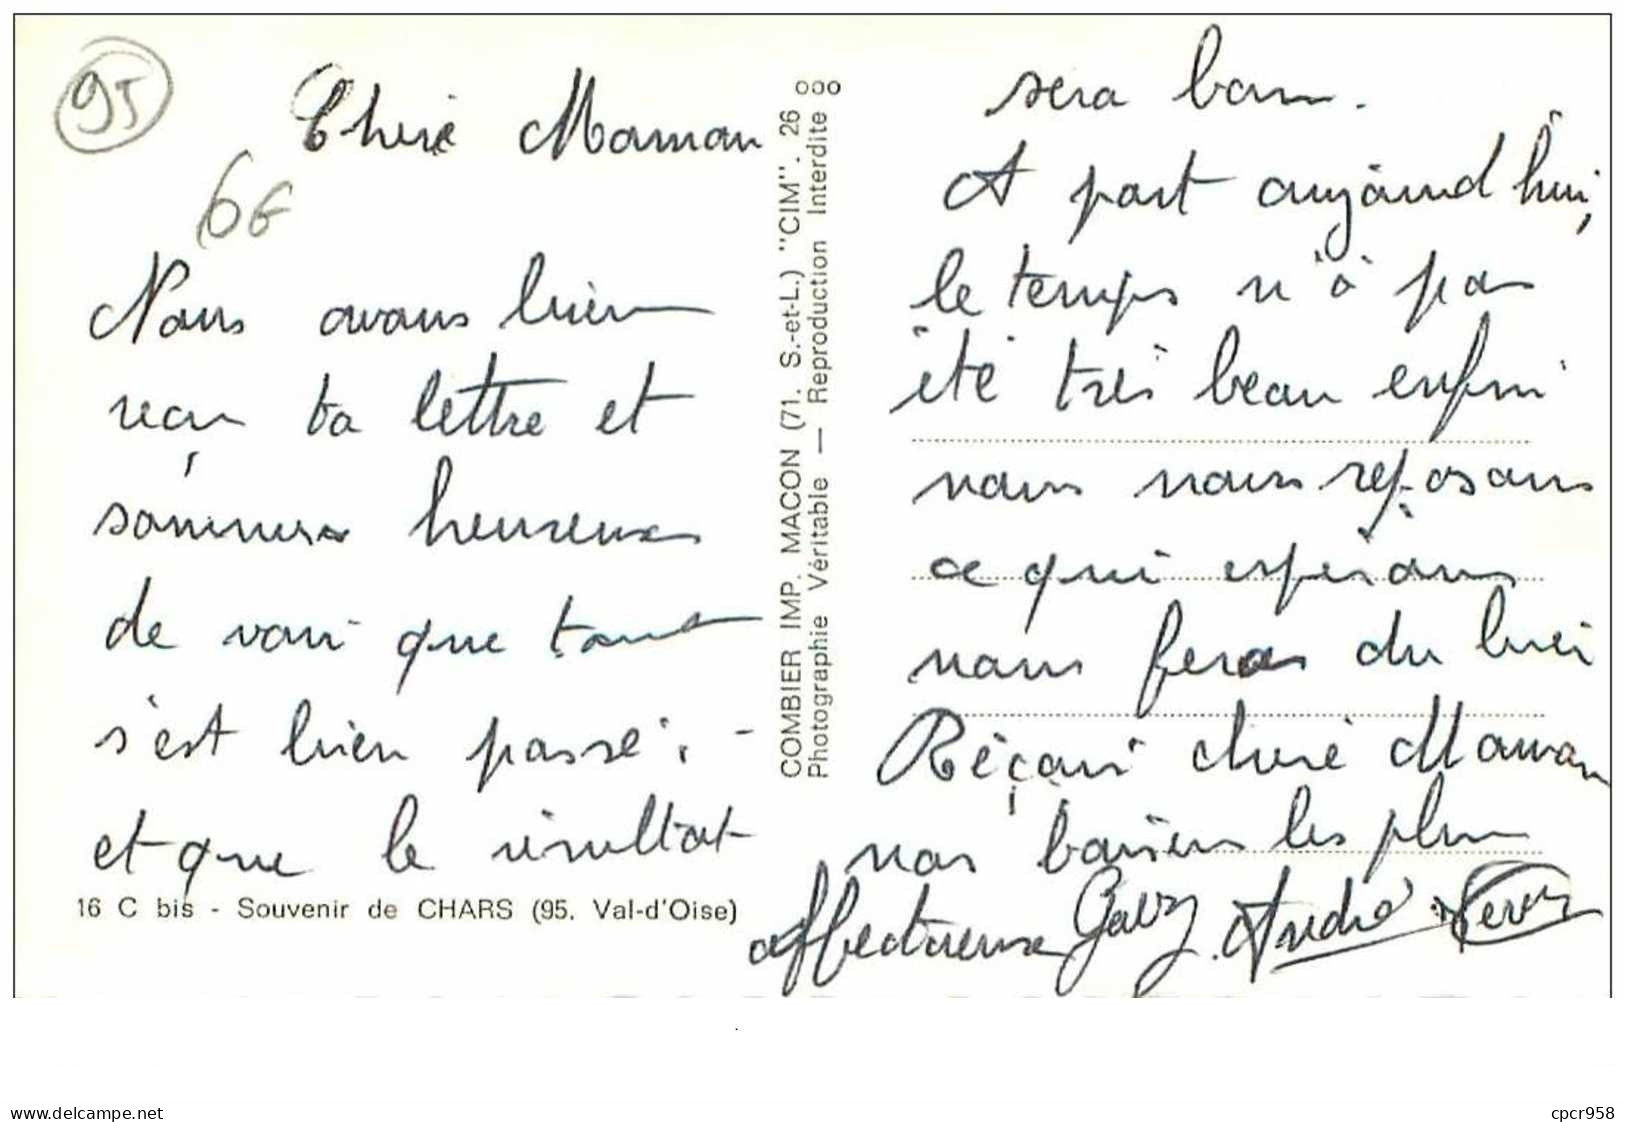 95
6€
Chère Maman
Nous avons bien
reçu ta lettre et
sommes heureuses
de voir que tout
s'est bien passé. -
et que le résultat
16 C bis - Souvenir de CHARS (95. Val-d'Oise)
COMBIER IMP. MACON (71. S.-et-L.) "CIM". 26
Photographie Véritable — Reproduction Interdite
sera bon.
A part aujourd'hui,
le temps n'à pas
été très beau enfin
nous nous reposons
ce qui espérons
nous feras du bien
Réçois chère Maman
nos baisers les plus
affectueux
André
www.delcampe.net
cpcr958